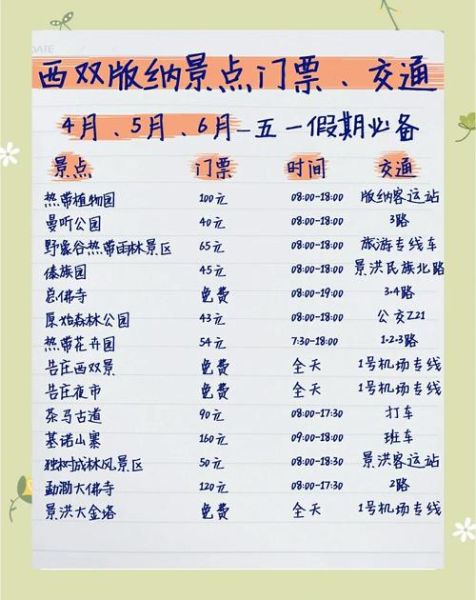 DATE
西双版纳景点门票、交通
4月、5月、6月-五一假期必备
景点 门票 时间 交通
热带植物园 100元 08:00-18:00 版纳客运站
曼听公园 40元 08:00-18:00 3路
野象谷热带雨林景区 65元 08:00-18:00 旅游专线车
傣族园 45元 08:00-18:00 景洪民族北路
总佛寺 免费 08:00-19:00 3.4路
原始森林公园 43元 08:00-18:00 公交Z21
热带花卉园 54元 7:30-18:00 1.2.3路
告庄西双景 免费 全天 1号机场专线
告庄夜市 免费 全天 1号机场专线
茶马古道 90元 08:00-17:30 打车
基诺山寨 160元 09:00-18:00 班车
独树成林风景区 50元 08:00-18:30 景洪客运站
勐泐大佛寺 120元 08:00-17:30 2路
景洪大金塔 免费 全天 1号机场专线